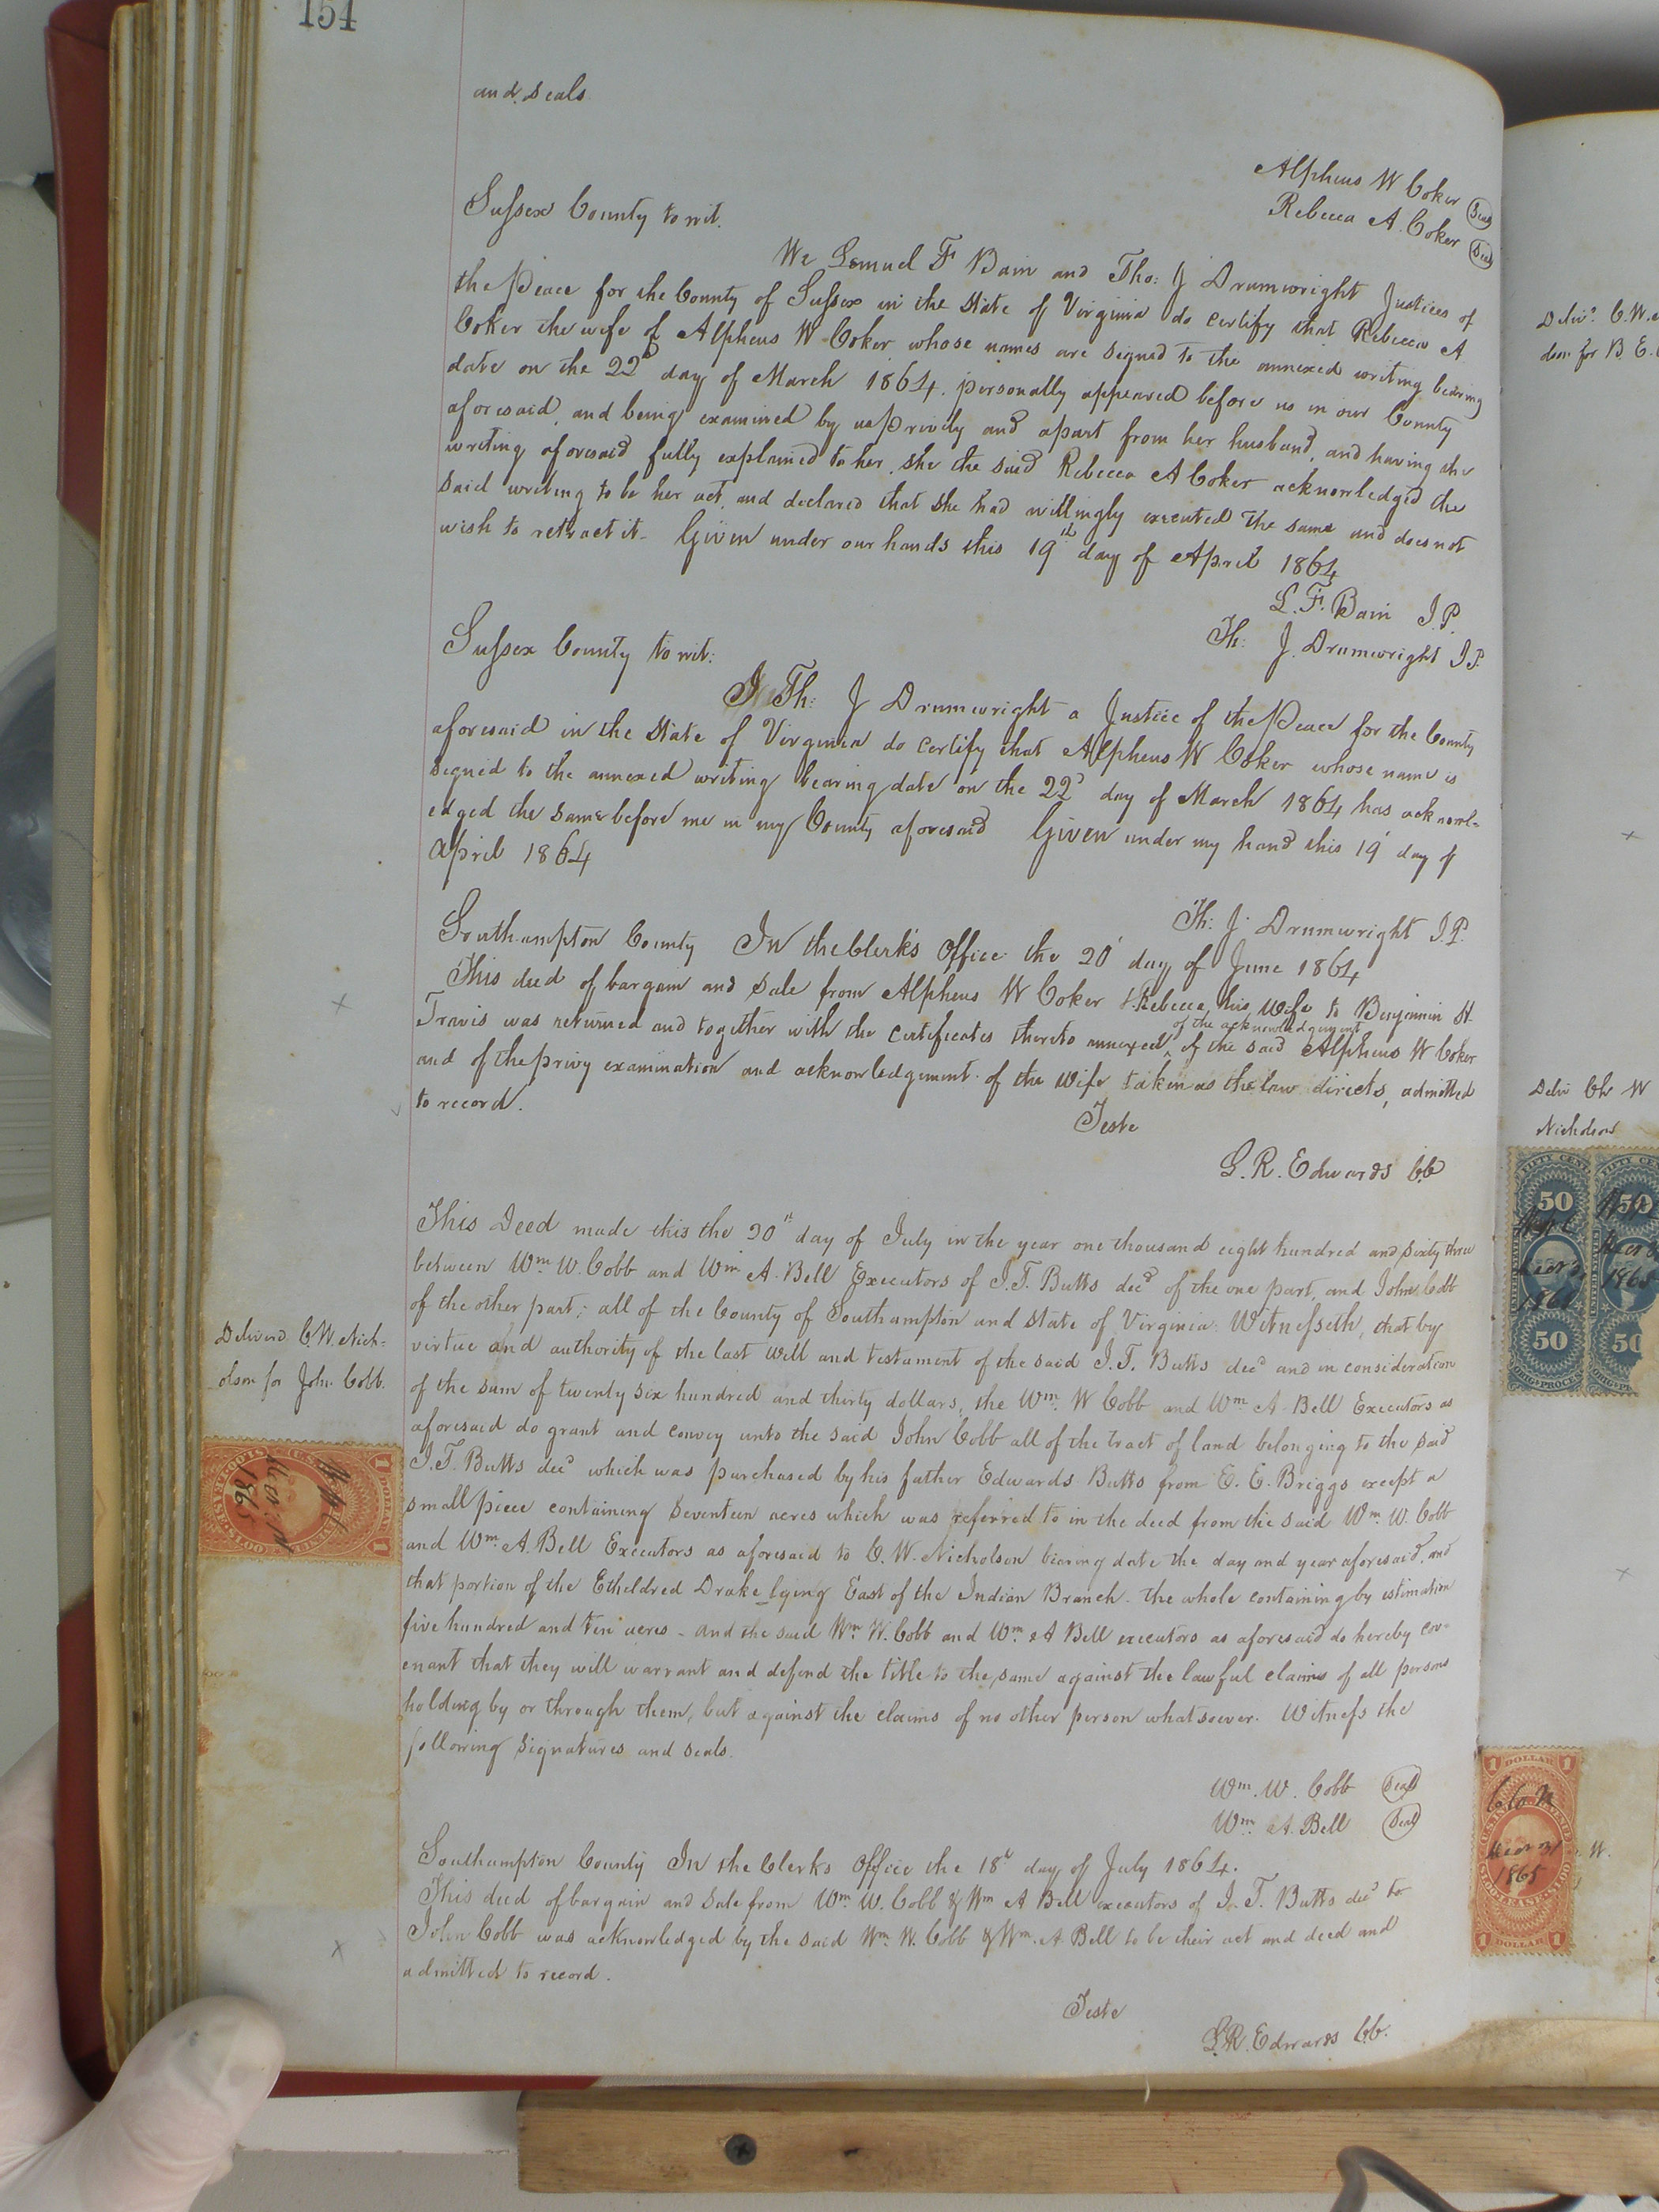 154
and Seals
Alpheus W Coker Seal
Rebecca A. Coker Seal
Sussex County to wit.
We Lemuel F Bain and Tho: J Drumwright Justices of
the Peace for the County of Sussex in the State of Virginia do certify that Rebecca A
Coker the wife of Alpheus W Coker whose names are signed to the annexed writing bearing
date on the 22d day of March 1864. personally appeared before us in our County
aforesaid, and being examined by us privily and apart from her husband, and having the
writing aforesaid fully explained to her, she the said Rebecca A Coker acknowledged the
said writing to be her act, and declared that she had willingly executed the same and does not
wish to retract it - Given under our hands this 19th day of April 1864
L. F. Bain J.P.
Th: J. Drumwright J.P.
Sussex County to wit:
I Th: J Drumwright a Justice of the Peace for the County
aforesaid in the State of Virginia do certify that Alpheus W Coker whose name is
signed to the annexed writing bearing date on the 22d day of March 1864 has acknowl-
edged the same before me in my County aforesaid Given under my hand this 19 day of
April 1864
Th: J Drumwright J.P.
Southampton County In the Clerk's Office the 20 day of June 1864
This deed of bargain and sale from Alpheus W Coker & Rebecca his wife to Benjamin H
Travis was returned and together with the certificates thereto annexed of the acknowledgement of the said Alpheus W Coker
and of the privy examination and acknowledgement of the wife taken as the law directs, admitted
to record.
Teste
L. R. Edwards CC
This Deed made this the 20th day of July in the year one thousand eight hundred and sixty three
between Wm W. Cobb and Wm A. Bell Executors of J. T. Butts decd of the one part, and John Cobb
of the other part; all of the County of Southampton and State of Virginia. Witnesseth, that by
virtue and authority of the last will and testament of the said J. T. Butts decd and in consideration
of the sum of twenty six hundred and thirty dollars, the Wm. W Cobb and Wm A. Bell Executors as
aforesaid do grant and convey unto the said John Cobb all of the tract of land belonging to the said
J. T. Butts decd which was purchased by his father Edwards Butts from E. E. Briggs except a
small piece containing seventeen acres which was referred to in the deed from the said Wm. W. Cobb
and Wm. A. Bell Executors as aforesaid to C. W. Nicholson bearing date the day and year aforesaid, and
that portion of the Etheldred Drake lying East of the Indian Branch. the whole containing by estimation
five hundred and ten acres - and the said Wm. W. Cobb and Wm. A Bell executors as aforesaid do hereby cov-
enant that they will warrant and defend the title to the same against the lawful claims of all persons
holding by or through them, but against the claims of no other person whatsoever. Witness the
following signatures and seals.
Wm. W. Cobb Seal
Wm. A. Bell Seal
Southampton County In the Clerks Office the 18 day of July 1864.
This deed of bargain and sale from Wm. W. Cobb & Wm A Bell executors of J. T. Butts decd to
John Cobb was acknowledged by the said Wm. W. Cobb & Wm. A Bell to be their act and deed and
admitted to record.
Teste
L. R. Edwards CC.
Deliverd C. W. Nich-
olson for John Cobb.
1865
1 DOLLAR 1
Delivd. C. W.
for B. E.
Deliv Ch W
Nicholson
FIFTY CENT
50 50
1865
50 50
1 DOLLAR 1
C W N
1865
W.
1 DOLLAR 1